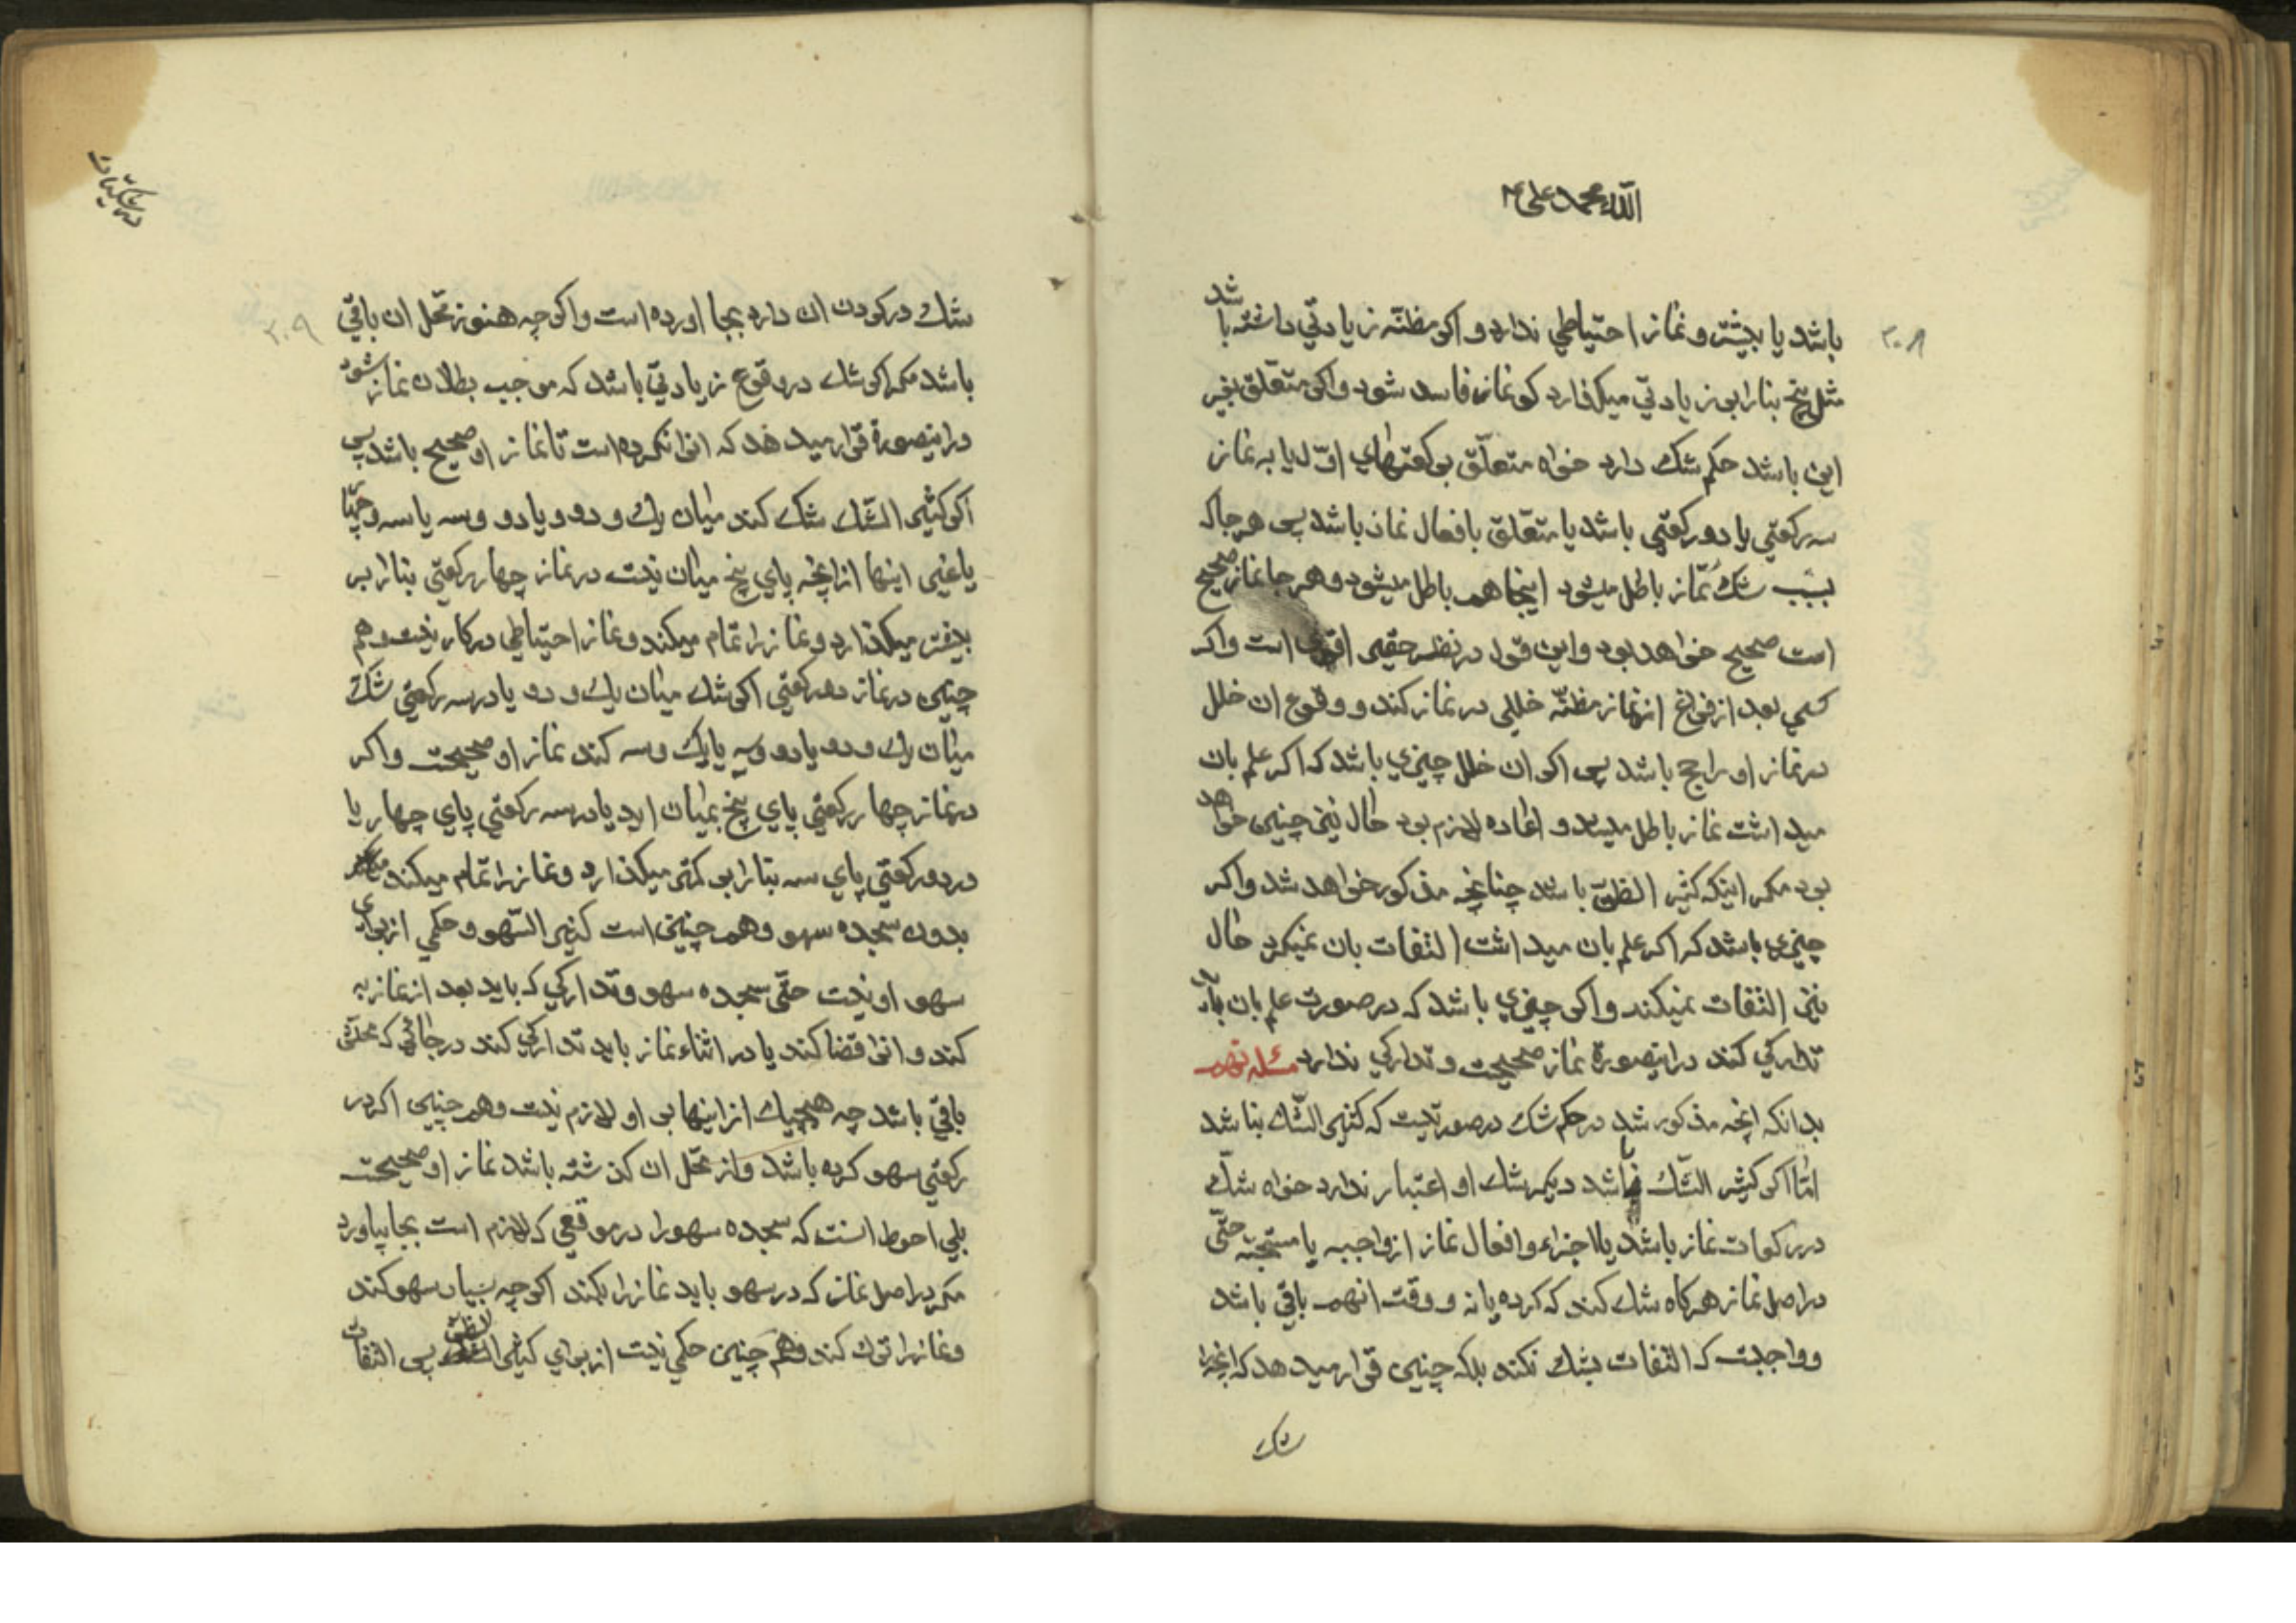 الله محمد علی
۳۰۸
باشد یا بیشتر و نماز احتیاطی ندارد و اکر مظنّه زیادتی داشته باشد
مثل پنج بنا را بر زیادتی میکذارد کو نماز فاسد شود و اکر متعلق بغیر
این باشد حکم شک دارد خواه متعلّق برکعتهای اوّل یا به نماز
سه رکعتی یا دو رکعتی باشد یا متعلّق بافعال نماز باشد پس هر جا که
بسبب شک نماز باطل میشود اینجا هم باطل میشود و هر جا نماز صحیح
است صحیح خواهد بود و این قول در نظر حقیر اقوی است و اکر
کسی بعد از فراغ از نماز مظنّه خللی در نماز کند و وقوع ان خلل
در نماز او راجح باشد پس اکر ان خلل چیزی باشد که اکر علم بان
میداشت نماز باطل میشد و اعاده لازم بود حال نیز چنین خواهد
بود مکر اینکه کثیر الظنّ باشد چنانچه مذکور خواهد شد و اکر
چیزی باشد که اکر علم بان میداشت التفات بان نمیکرد حال
نیز التفات نمیکند و اکر چیزی باشد که در صورت علم بان باید
تدارکی کند در اینصورة نماز صحیحست و تدارکی ندارد مسئله نهم
بدانکه انچه مذکور شد در حکم شک در صورتیست که کثیر الشّک نباشد
امّا اکر کثیر الشّک باشد دیکر شک او اعتبار ندارد خواه شک
در رکعات نماز باشد یا اجزاء و افعال نماز از واجبه یا مستحبّه حتّی
در اصل نماز هر کاه شک کند که کرده یا نه و وقت انهم باقی باشد
و واجبست که التفات بشک نکند بلکه چنین قرار میدهد که انچه را
شک
در شکیّات
۳۰۹
شک در کردن ان دارد بجا اورده است و اکر چه هنوز محل ان باقی
باشد مکر اکر شک در وقوع زیادتی باشد که موجب بطلان نماز شود
در اینصورة قرار میدهد که انرا نکرده است تا نماز او صحیح باشد پس
اکر کثیر الشّک شک کند میان یک و دو و یا دو و سه یا سه و چهار
یا غیر اینها از انچه پای پنج میان نیست در نماز چهار رکعتی بنا را بر
بیشتر میکذارد و نماز را تمام میکند و نماز احتیاطی در کار نیست و هم
چنین در نماز دو رکعتی اکر شک میان یک و دو یا در سه رکعتی شک
میان یک و دو یا دو و سه یا یک و سه کند نماز او صحیحست و اکر
در نماز چهار رکعتی پای پنج بمیان اید یا در سه رکعتی پای چهار یا
در دو رکعتی پای سه بنا را بر کمتر میکذارد و نماز را تمام میکند
بدون سجده سهو و هم چنین است کثیر السّهو و حکمی از برای
سهو او نیست حتّی سجده سهو و تدارکی که باید بعد از نماز به
کند و انرا قضا کند یا در اثناء نماز باید تدارکی کند در جائی که محلّش
باقی باشد چه هیچیک از اینها بر او لازم نیست و هم چنین اکر در
رکعتی سهو کرده باشد و از محّل ان کذشته باشد نماز او صحیحست
بلی احوط انست که سجده سهو را در موقعی که لازم است بجا بیاورد
مکر در اصل نماز که در سهو باید نماز را بکند اکر چه بسیار سهو کند
و نماز را ترک کند و هم چنین حکمی نیست از برای کثیر الظنّ پس التفات